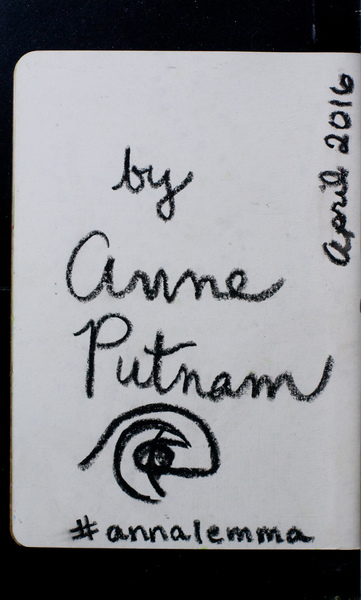 by
Anne
Putnam
#annalemma
April 2016